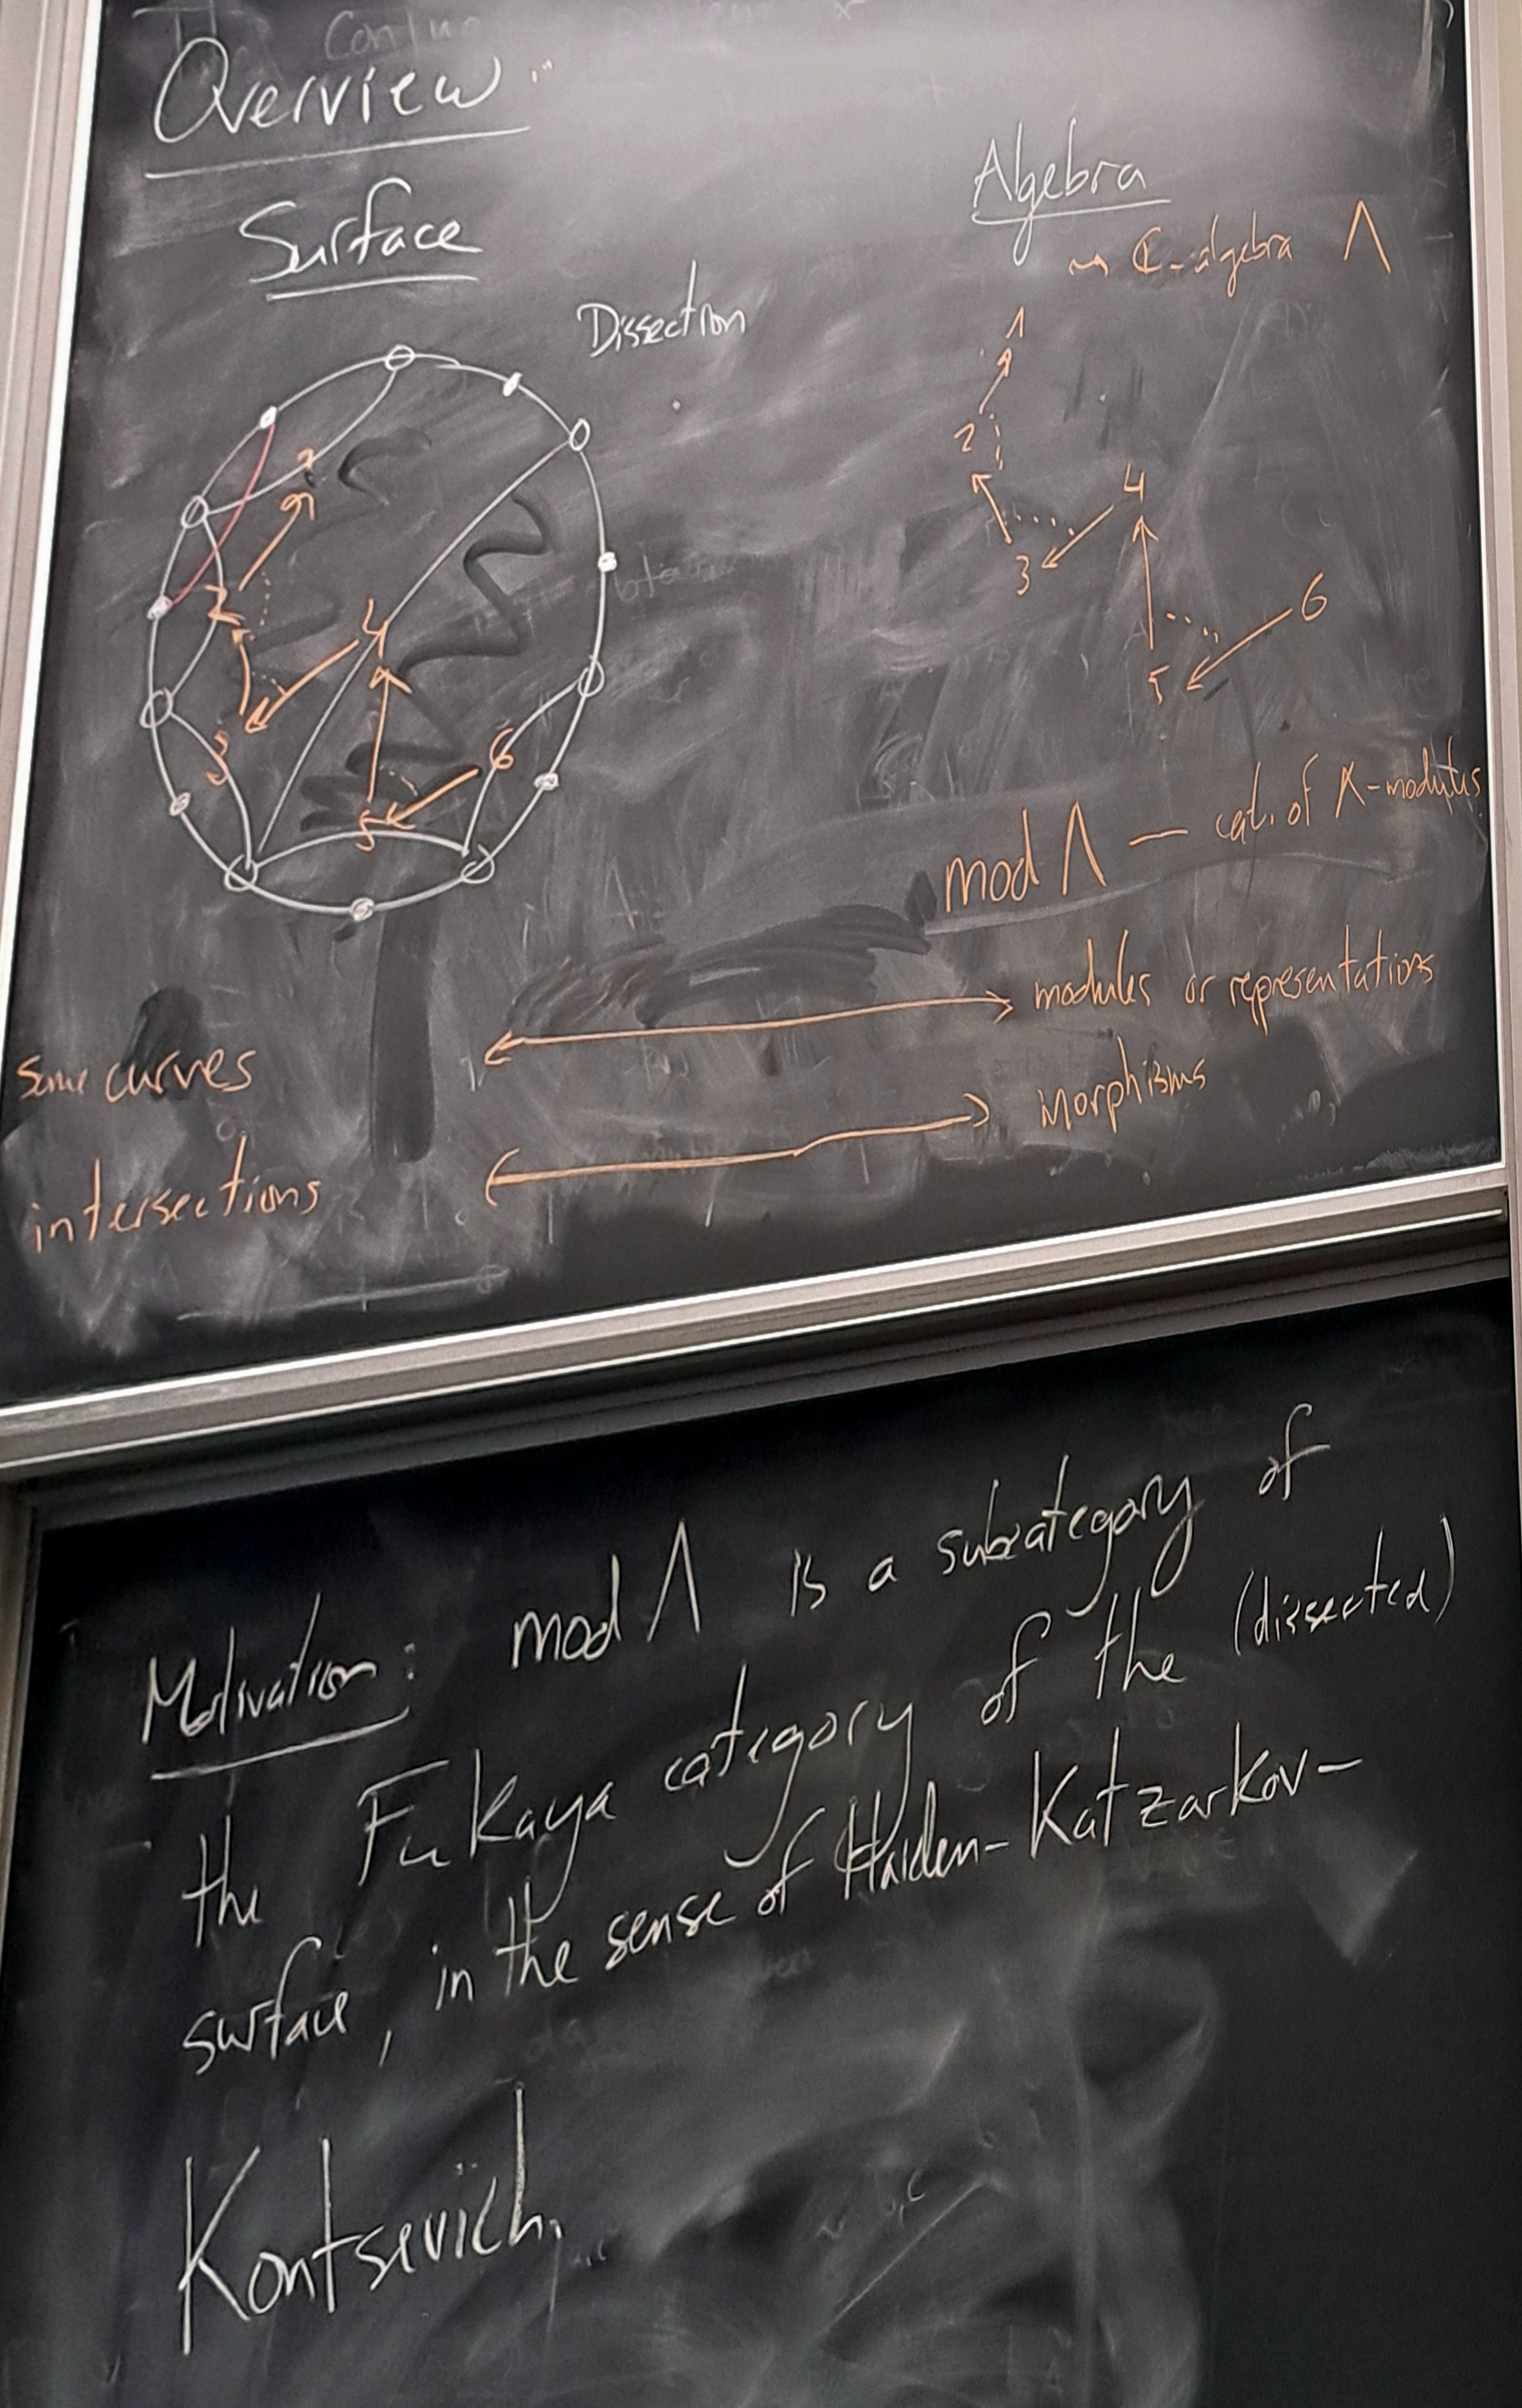 Overview
Surface
Dissection
Algebra
⇝ ℂ-algebra Λ
1
2
3
4
5
6
1
2
3
4
5
6
mod Λ — cat. of Λ-modules
some curves ⟷ modules or representations
intersections ⟷ morphisms
Motivation: mod Λ is a subcategory of
the Fukaya category of the (dissected)
surface, in the sense of Haiden-Katzarkov-
Kontsevich.